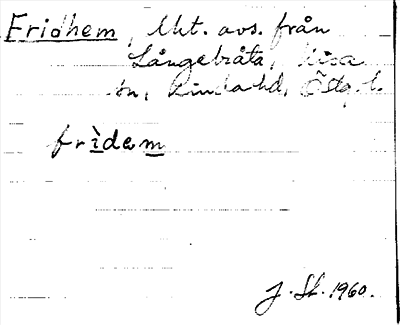 Fridhem, lht. avs. från
Långebråta, Kisa
sn, Kinda hd, Östg. l.
frìdem
J. St. 1960.